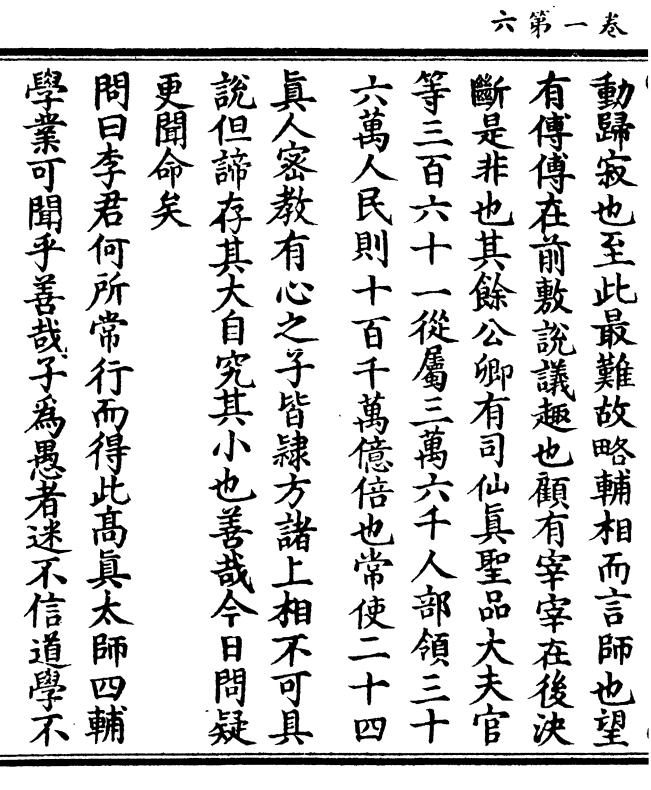 卷一第六
動歸寂也至此最難故略輔相而言師也望
有傅傅在前敷說議趣也顧有宰宰在後決
斷是非也其餘公卿有司仙眞聖品大夫官
等三百六十一從屬三萬六千人部領三十
六萬人民則十百千萬億倍也常使二十四
眞人密教有心之子皆隷方諸上相不可具
說但諦存其大自究其小也善哉今日問疑
更聞命矣
問曰李君何所常行而得此高眞太師四輔
學業可聞乎善哉子爲愚者迷不信道學不